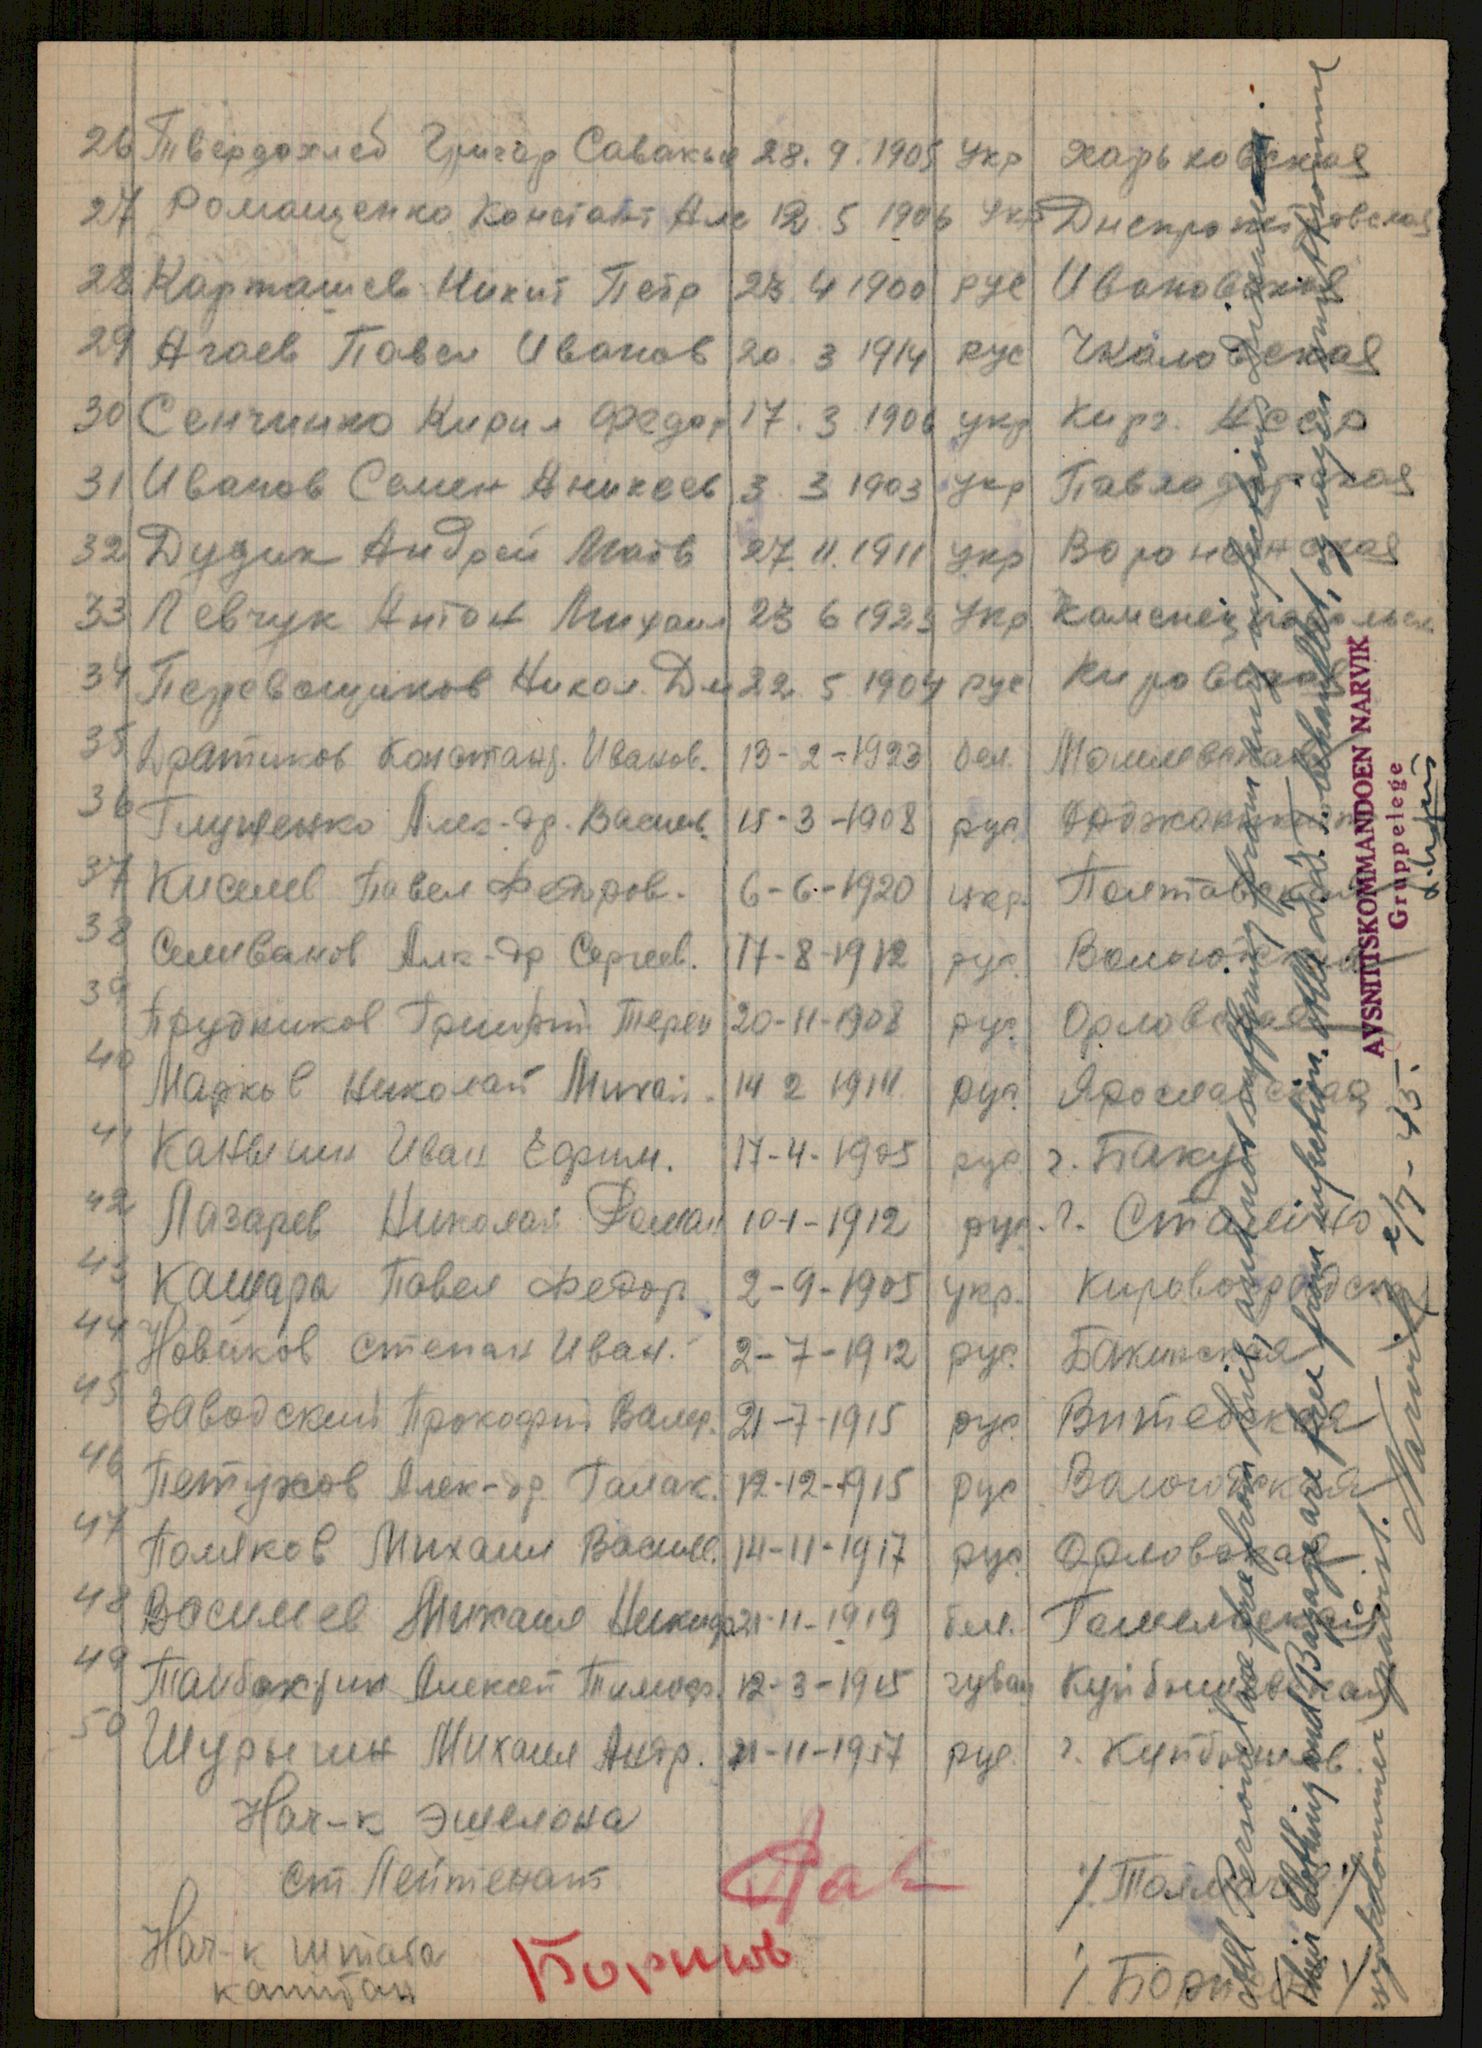 26 Твердохлеб Григор Савакье 28.9.1905 Укр Харьковская
27 Ромащенко Констант Але 12 5 1906 Укр Днепропетровская
28 Карташев Никит Петр 23 4 1900 рус Ивановская
29 Агаев Павел Иванов 20.3 1914 рус Чкаловская
30 Сенчинко Кирил Федор 17.3.1906 укр Кирг. АССР
31 Иванов Семен Аникеев 3.3 1903 укр Павлодарская
32 Дудик Андрей Матв 27.11.1911 укр Воронежская
33 Левчук Антон Михаил 23 6 1923 Укр Каменецподольск
34 Перевощиков Никол. Дм 22.5 1904 рус Кировская
35 Братиков Констант. Иванов. 13-2-1923 бел. Могилевская
36 Глущенко Алек-др. Васил. 15-3-1908 рус. Орджоникидз
37 Киселев Павел Федоров. 6-6-1920 укр. Полтавская
38 Селиванов Алк-др Сергеев. 17-8-1912 рус. Вологотская
39 Прудников Григорий Терен 20-11-1908 рус. Орловская
40 Марков Николай Михай. 14 2 1914 рус. Ярославская
41 Канышин Иван Ефим. 17-4-1905 рус г. Баку
42 Лазарев Николай Роман 10-1-1912 рус. г. Сталино
43 Кашара Павел Федор 2-9-1905 укр. Кировоградска
44 Новиков Степан Иван. 2-7-1912 рус. Бакинская
45 Заводский Прокофий Валер. 21-7-1915 рус. Витебская
46 Петухов Алек-др. Галак. 12-12-1915 рус Вологотская
47 Поляков Михаил Васил. 14-11-1917 рус Орловская
48 Васильев Михаил Никифр 21-11-1919 бел. Гомельская
49 Тайбакрин Алексей Тимоф. 12-3-1915 чуваш Куйбышевская
50 Шурыгин Михаил Андр. 21-11-1917 рус. г. Куйбышев.
Нач-к эшелона
ст Лейтенант
Нач-к штаба
капитан Борисов /. Борисов /
All Personel are free from lice, and not suffering from any infectious diseases.
Their Clothing and Bagage are free from infection. behandlet, og ingen
sykdommer
Narvik 2/7-45.
AVSNITTSKOMMANDOEN NARVIK
Gruppelege